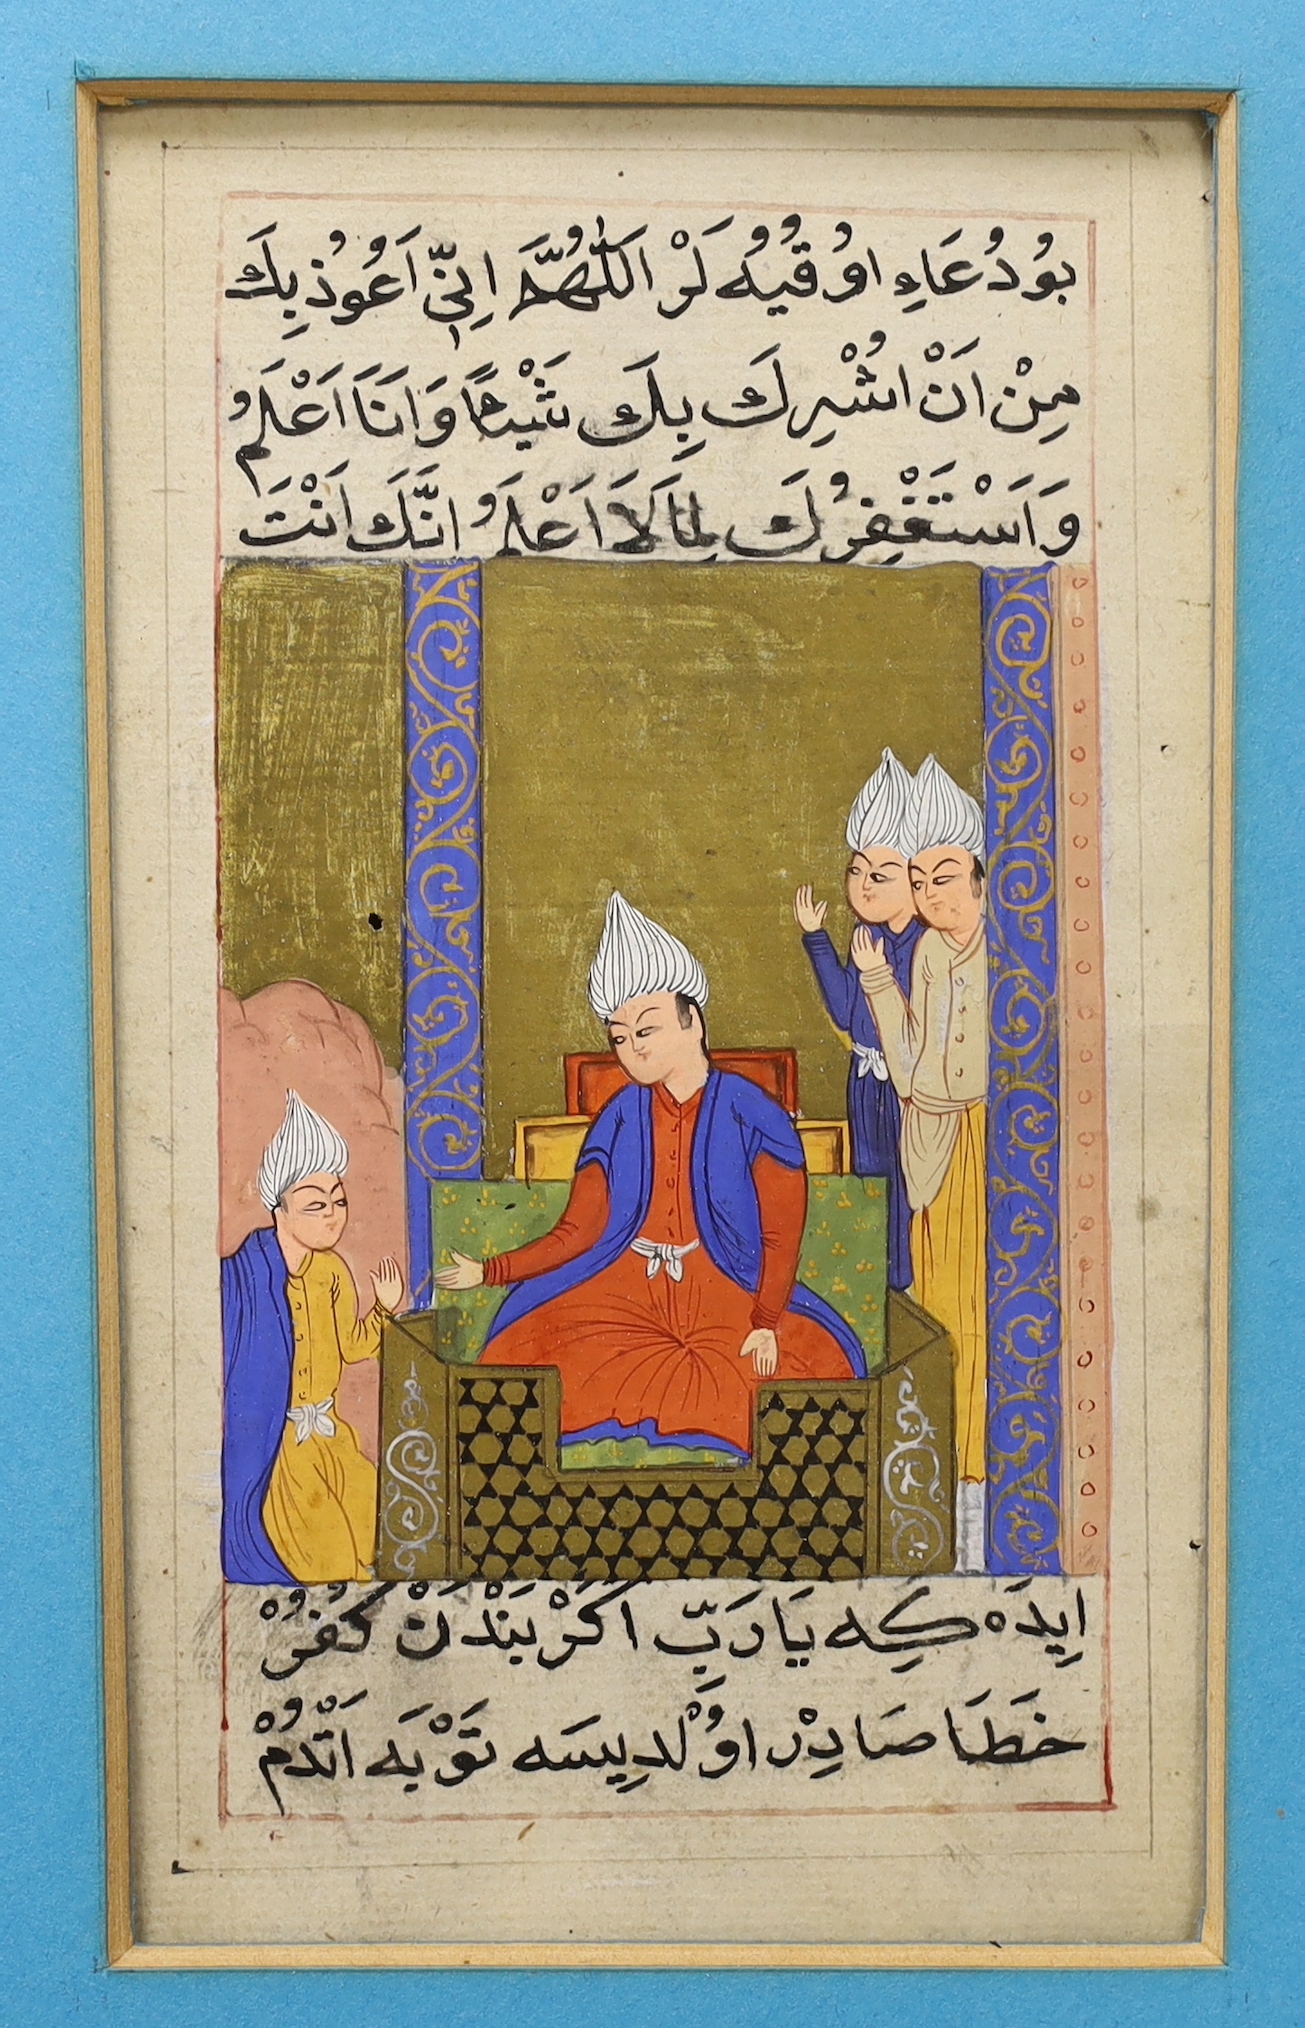 بُودُعَاءِ اوُقُيُه لَرْ اَللّٰهُمَّ اِنِّى اَعُوذُبِكَ
مِنْ اَنْ اُشْرِكَ بِكَ شَيْئًا وَاَنَا اَعْلَمُ
وَاَسْتَغْفِرُكَ لِمَا لَا اَعْلَمُ اِنَّكَ اَنْتَ
اِيدَه كِه يَارَبِّ اَكَرْ بَنْدَنْ كُفُرْ
خَطَا صَادِرْ اوُلْدِيسَه تَوْبَه اَتْدُمْ